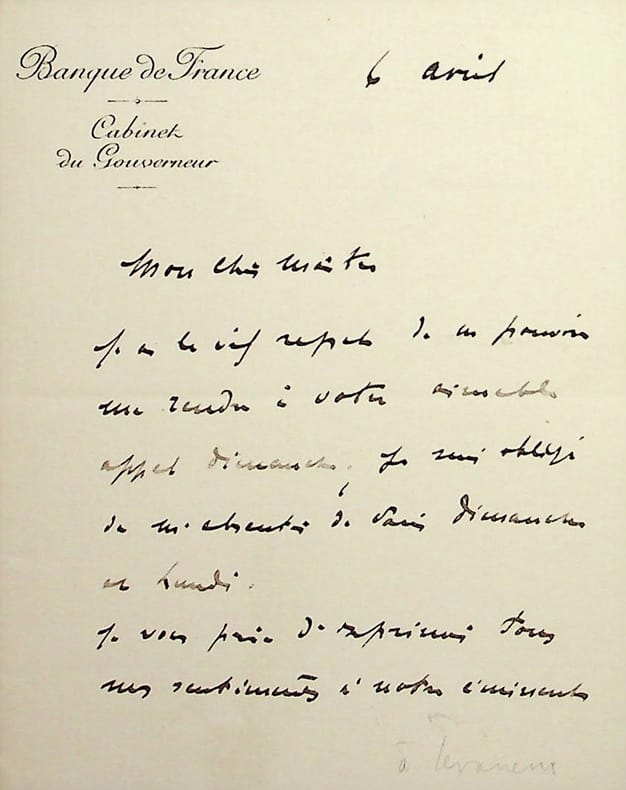 Banque de France
Cabinet
du Gouverneur
6 avril
Mon cher maître
J'ai le vif regret de ne pouvoir
me rendre à votre aimable
appel dimanche, je suis obligé
de m'absenter de Paris dimanche
et lundi.
Je vous prie d'exprimer tous
mes sentiments à notre éminent
à